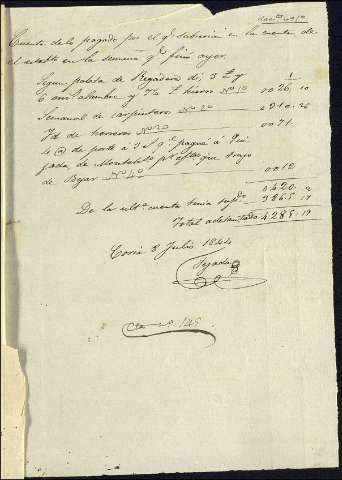 Cuenta de lo pagado por el qe subscrive en la cuenta de
el establto en la semana qe finó ayer.
Segun poleta de Regadera di 5 £ y
6 onzs alambre y 7½ £ hierro No 1o 0026 10
Semanal de carpintero No 2o 0310. 26
Yd. de herrero No 3o 0071.
4 @ de porte á 3 rs qe pagué á
de Montalvo pr que trajo
de Bejar No 4o 0012
0420. 2
De la ulta cuenta tenia supdo 3865. 17
Total adelantado 4285. 19
Coria 8 Julio 1844
Tejada
Cta no 145